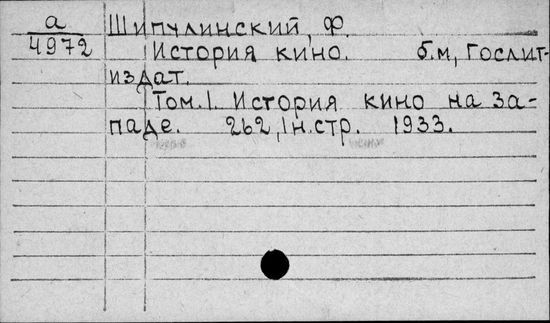 а Шипулинский, Ф.
4972 История кино. б.м, Гослит-
издат.
Том.1. История кино на За-
паде. 262, 1н.стр. 1933.